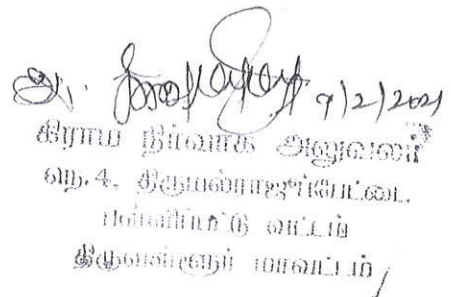 அ. 9/2/2021
கிராம நிர்வாக அலுவலர்
எண்.4, திருமல்ராஜூபேட்டை.
பள்ளிப்பட்டு வட்டம்
திருவள்ளூர் மாவட்டம்